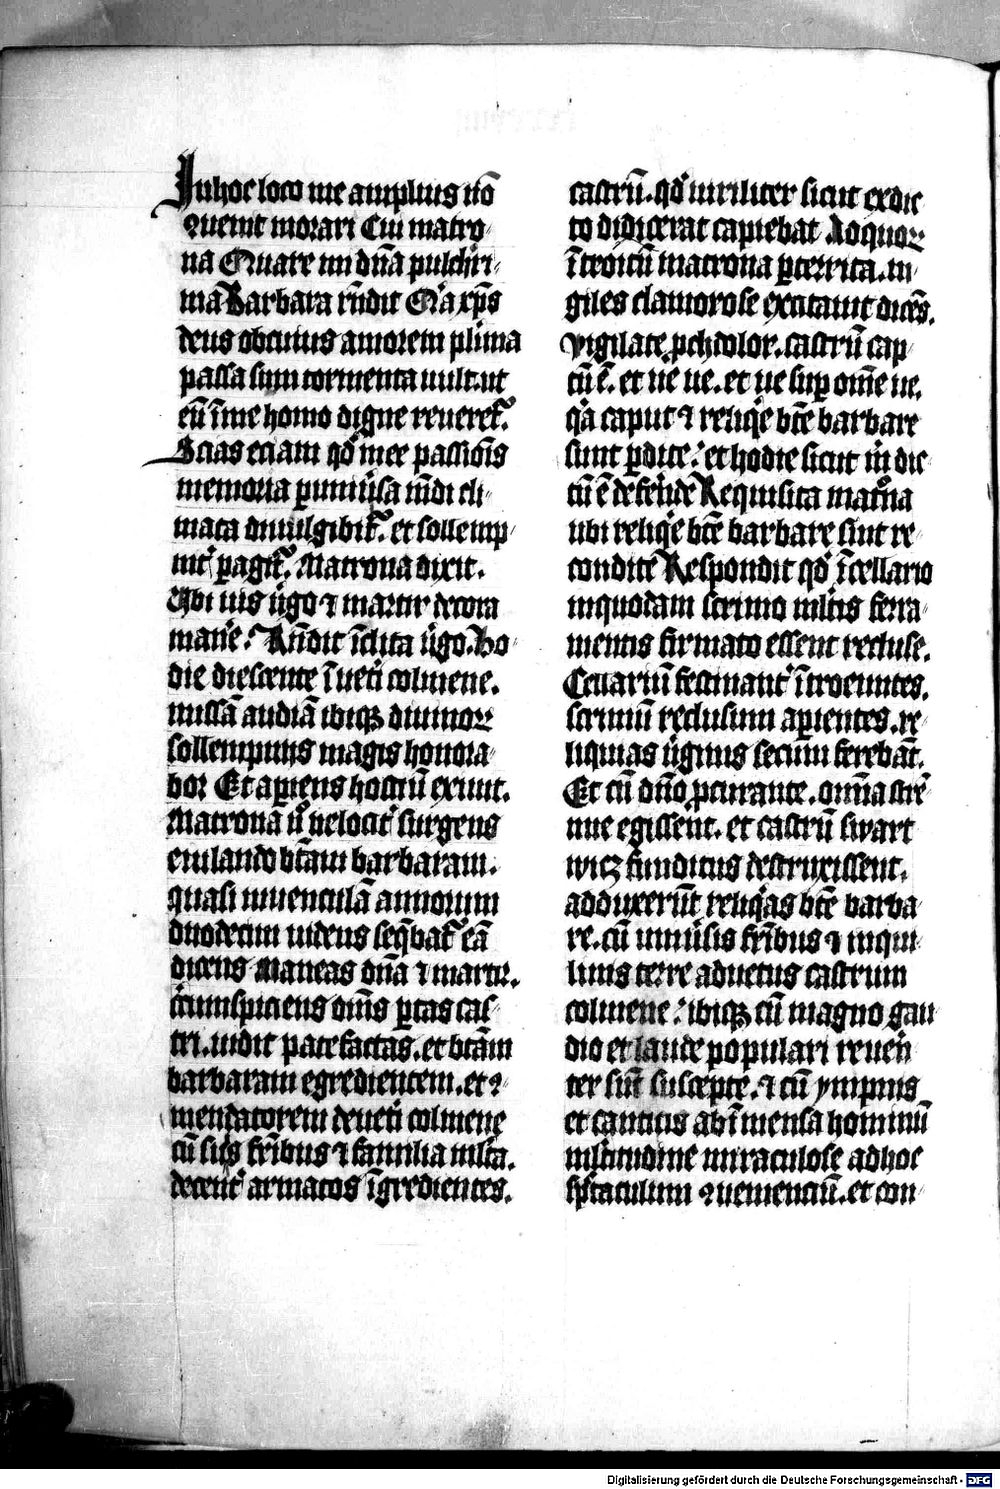 In hoc loco me amplius nō
ꝯuenit morari Cui matro-
na Quare mi dn̄a pulchri-
ma Barbara rn̄dit Q'a xp̄s
deus ob cuius amorem plima
passa sum tormenta uult ut
eū ī me homo digne reueret᷑.
Scias eciam qd̓ mee passiōis
memoria ꝑ uniūsa mūdi cli-
mata diuulgibit᷑. et sollemp-
nit᷑ ꝑagit᷑. Matrona dixit.
Ubi uis ūgo ⁊ martir decora
man̓e? Rn̄dit īclita ūgo. Ho-
die diescente ī uet̓i colmene.
missā audiā ibiqꝫ diuinoꝝ
sollempniis magis honora-
bor Et apiens hostiū exiuit.
Matrona ū̊ uelocit᷑ surgens
eiulando btām barbaram.
quasi iuuenculā annorum
duodecim uidens seq̄bat᷑ eā
dicens Maneas dn̄a ⁊ martir.
c̓cumspiciens om̄s ꝑtas cas-
tri. uidit patefactas. et btām
barbaram egredientem. et ꝯ-
mendatorem de uet̓i colmene
cū suis fr̄ibus ⁊ familia mlta.
decent᷑ armatos īgredientes.
castrū. qd̓ uiriliter sicut ex dic-
to didicerat capiebat Ad quoꝝ
ītroitū matrona ꝑterrita. ui-
giles clamorose excitauit dicēs.
Vigilate ꝓch dolor. castrū cap-
tū ē. et ue ue. et ue suꝑ om̄e ue.
q̓a caput ⁊ reliq̓e btē barbare
sunt ꝑdite? et hodie sicut m̓ dic-
tū ē defendē Requisita mat̊na
ubi reliq̓e btē barbare sint re-
condite Respondit qd̓ ī cellario
in quodam scrinio mltis ferra-
mentis firmato essent recluse.
Cellariū festinant᷑ ītroeuntes.
scriniū reclusum apientes. re-
liquias ūginis secum ferebāt.
Et cū dn̄o ꝓcurante. omnia strē-
nue egissent. et castrū swart
wicz funditus destruxissent.
adduxerūt reliq̓as btē barba-
re. cū uniūsis fr̄ibus ⁊ inqui-
linis terre ad uetus castrum
colmene? ibiqꝫ cū magno gau-
dio et laude populari reuerē-
ter sūt suscepte. ⁊ cū ympnis
et canticis ab īmensa hominū
mltitudine miraculose ad hoc
spectaculum ꝯuenienciū. et con-
Digitalisierung gefördert durch die Deutsche Forschungsgemeinschaft - DFG